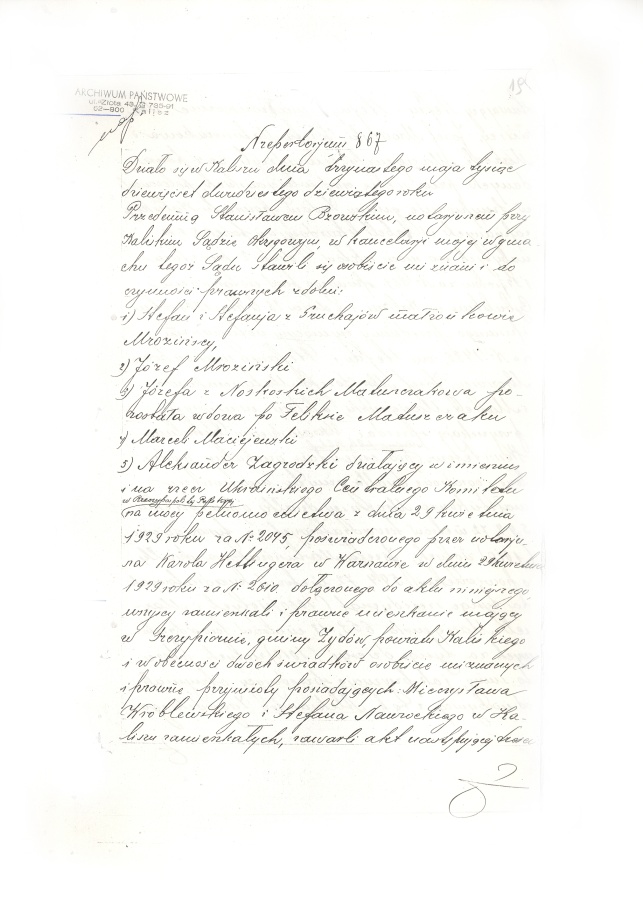 ARCHIWUM PAŃSTWOWE
ul. Złota 43
62-800 Kalisz
195
N repertorjum 867
Działo się w Kaliszu dnia trzynastego maja tysiąc
dziewięćset dwudziestego dziewiątego roku
Przedemną Stanisławem Bzowskim, notarjuszem przy
Kaliskim Sądzie Okręgowym, w kancelarji mojej w gma-
chu tegoż Sądu stawili się osobiście mi znani i do
czynności prawnych zdolni:
1) Stefan i Stefanja z małżonkowie
Mrozińscy,
2) Józef Mroziński
3) Józefa z Noskoskich Matuszczakowa po-
została wdowa po Feliksie Matuszczaku
4) Marceli Maciejewski
5) Aleksander Zagrodzki działający w imieniu
i na rzecz Ukraińskiego Centralnego Komitetu
w Rzeczypospolitej Polskiej
na mocy pełnomocnictwa z dnia 29 kwietnia
1929 roku za N: 2045, poświadczonego przez notarju-
sza Karola Hettlingera w Warszawie w dniu 29 kwietnia
1929 roku za N: 2610. dołączonego do aktu niniejszego,
wszyscy zamieszkali i prawne mieszkanie mający
w Szczypiornie, gminy Żydów, powiatu Kaliskiego
i w obecności dwóch świadków osobiście mi znanych
i prawne przymioty posiadających: Mieczysława
Wróblewskiego i Stefana Nawrockiego w Ka-
liszu zamieszkałych, zawarli akt następującej treści